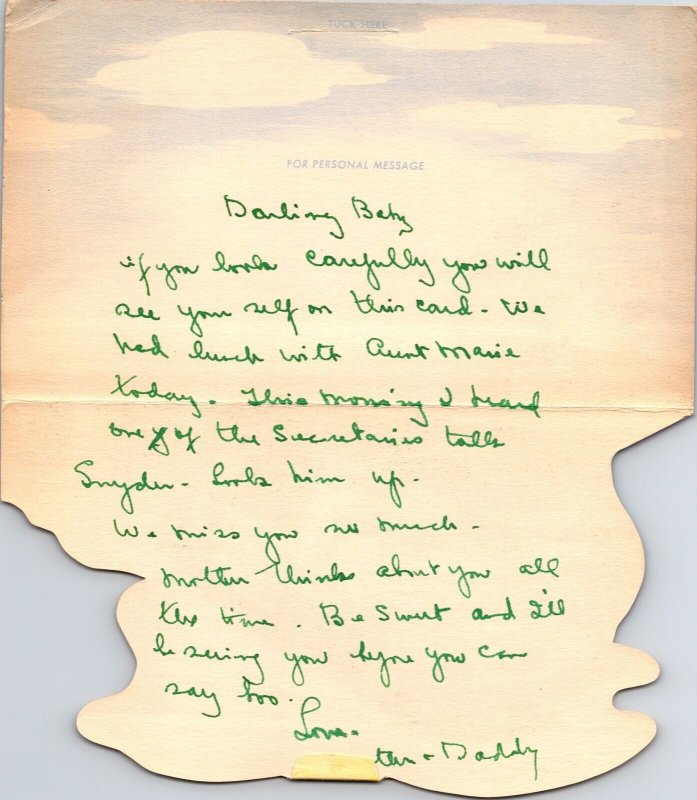 TUCK HERE
FOR PERSONAL MESSAGE
Darling Baby
if you look carefully you will
see your self on this card - We
had lunch with Aunt Marie
today. This morning I heard
one of the Secretaries talk
Snyder - Look him up.
We miss you so much -
Mother thinks about you all
the time. Be Sweet and I'll
be seeing you before you can
say boo.
Love.
+ Daddy